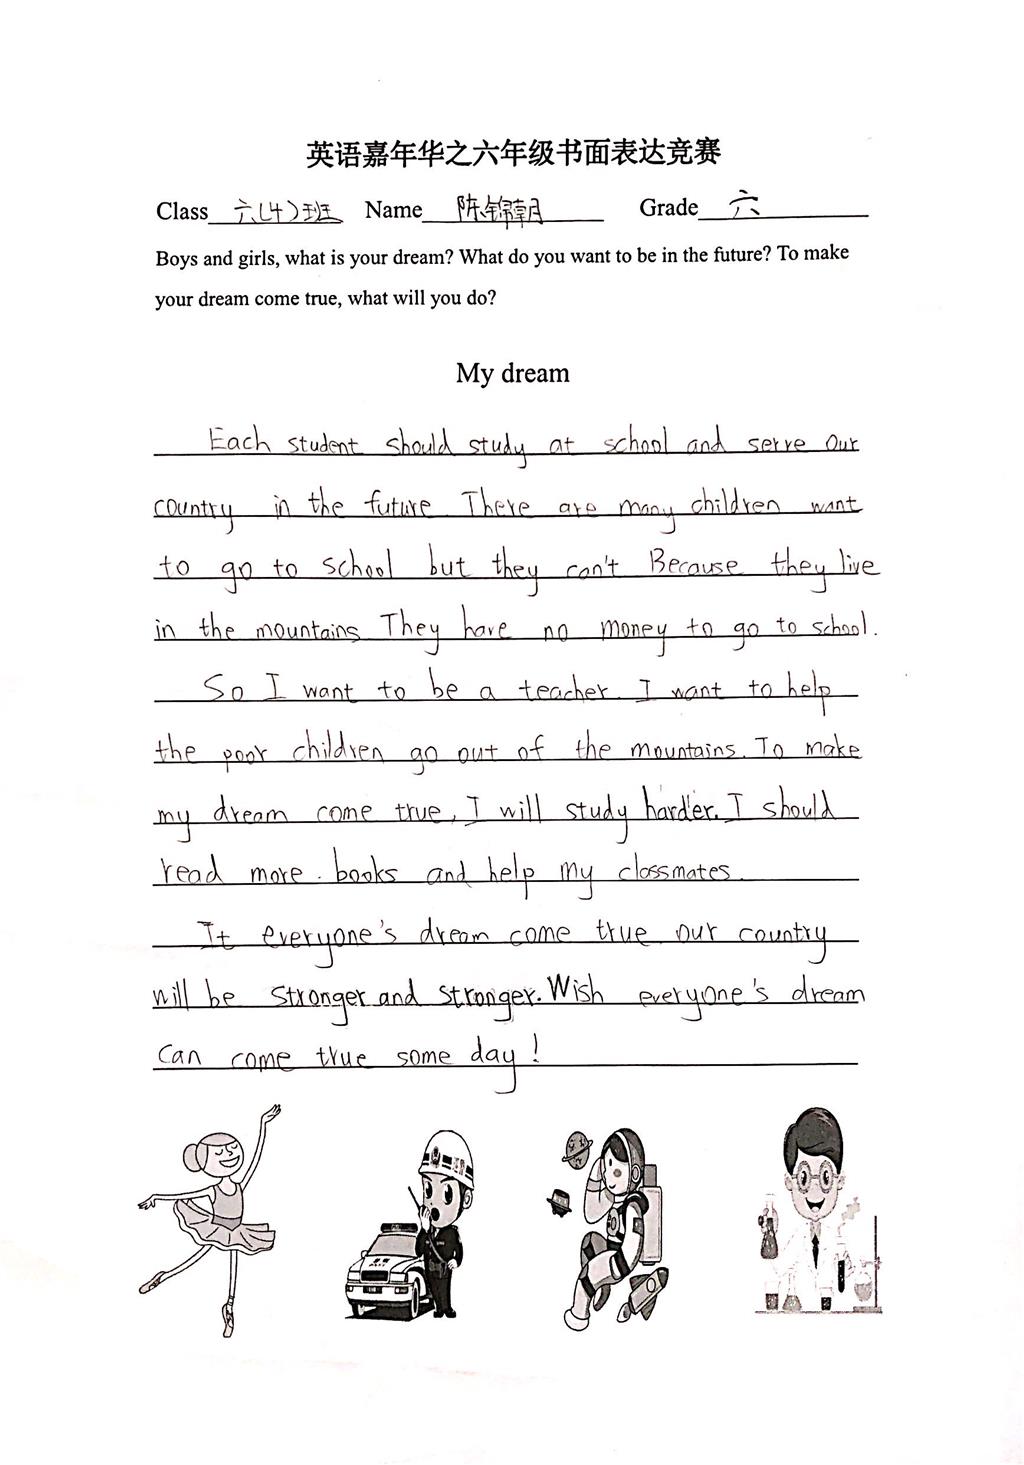 英语嘉年华之六年级书面表达竞赛
Class 六(4)班 Name 陈锦朝 Grade 六
Boys and girls, what is your dream? What do you want to be in the future? To make
your dream come true, what will you do?
My dream
Each student should study at school and serve our
country in the future. There are many children want
to go to school but they can't Because they live
in the mountains They have no money to go to school.
So I want to be a teacher. I want to help
the poor children go out of the mountains. To make
my dream come true, I will study harder. I should
read more. books and help my classmates.
If everyone's dream come true our country
will be stronger and stronger. Wish everyone's dream
can come true some day!